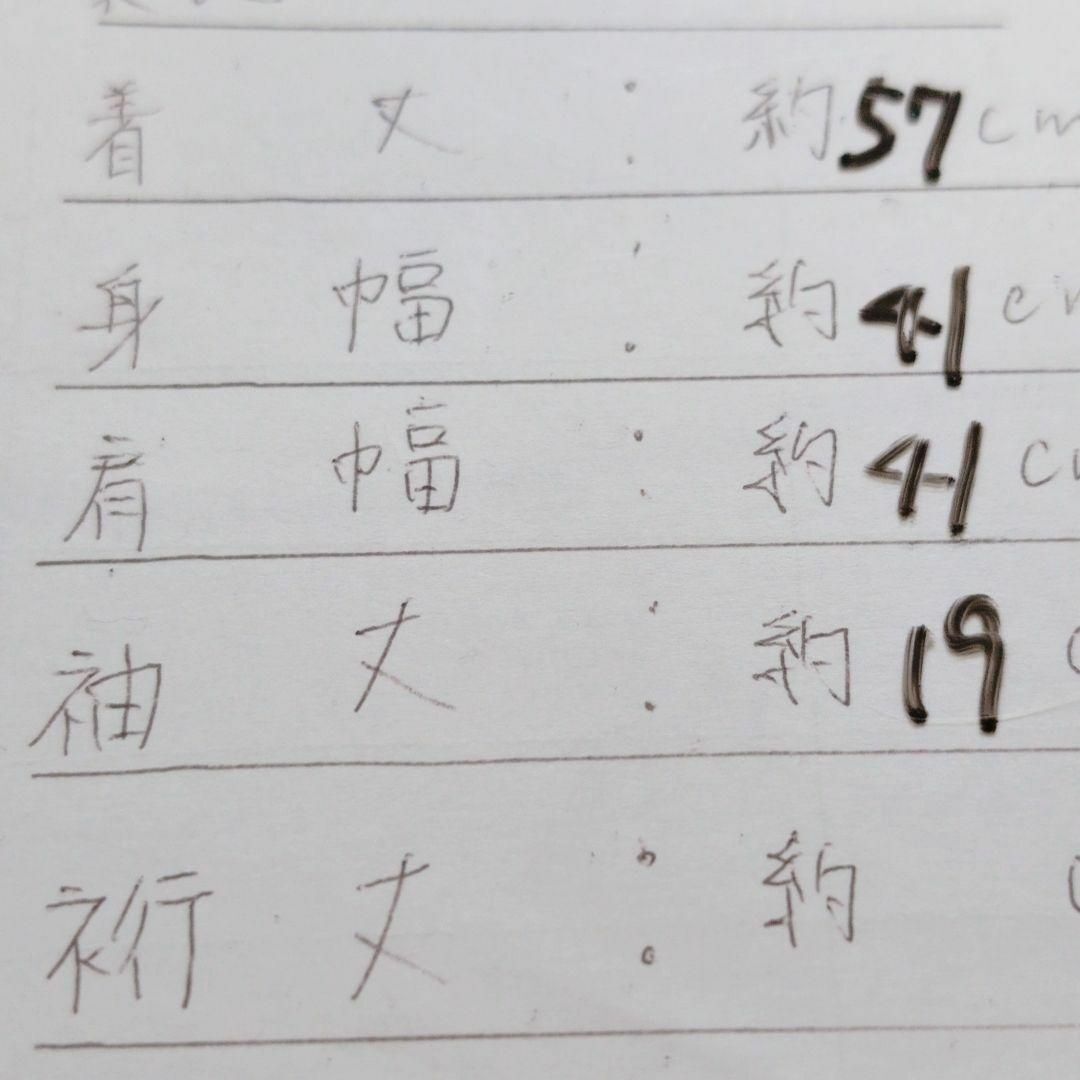 着丈:約57cm
身幅:約41cm
肩幅:約41c
袖丈:約19c
裄丈:約